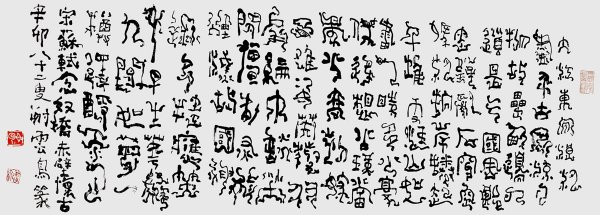 大江東去浪淘
盡千古風流人
物故壘西邊人
道是三國周郎
赤壁亂石穿空
驚濤拍岸捲起
千堆雪江山如
畫一時多少豪
傑遙想公瑾當
年小喬初嫁
了雄姿英發
羽扇綸巾談笑
間檣櫓灰飛
煙滅故國神
遊多情應笑我
早生華髮
人生如夢
一尊還酹江月
宋蘇軾念奴嬌赤壁懷古
辛卯八十二叟謝雲鳥篆